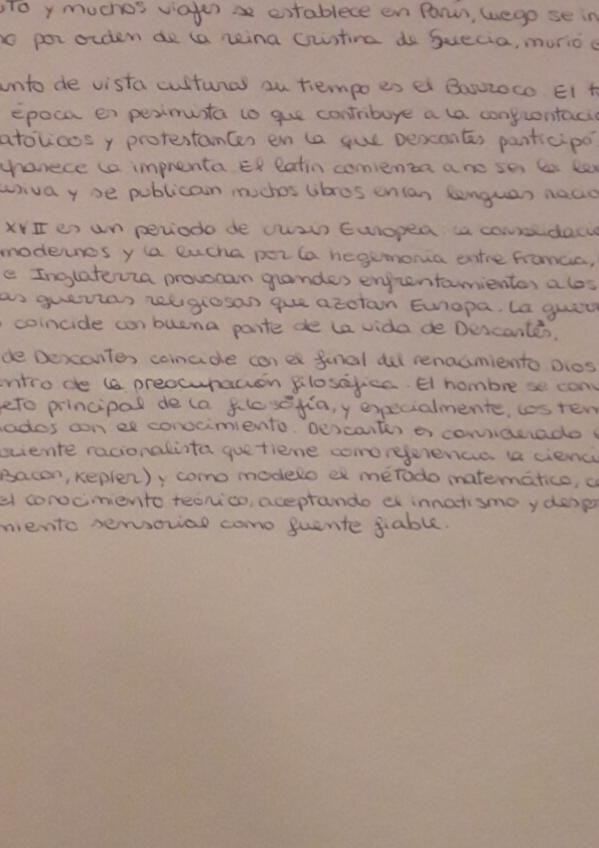 y muchos viajes se establece en París, luego se in
por orden de la reina Cristina de Suecia, murió e
unto de vista cultural su tiempo es el Barroco. El t
época es pesimista lo que contribuye a la confrontació
atólicos y protestantes en la que Descartes participó
aparece la imprenta. El latín comienza a no ser la len
usiva y se publican muchos libros en las lenguas nacio
XVII es un periodo de crisis Europea: la consolidació
modernos y la lucha por la hegemonía entre Francia,
e Inglaterra provocan grandes enfrentamientos a los
as guerras religiosas que azotan Europa. La guerr
coincide con buena parte de la vida de Descartes.
de Descartes coincide con el final del renacimiento. Dios
entro de la preocupación filosófica. El hombre se conv
eto principal de la filosofía, y especialmente, los tem
ados con el conocimiento. Descartes es considerado
riente racionalista que tiene como referencia la cienci
Bacon, Kepler) y como modelo el método matemático, c
el conocimiento teórico, aceptando el innatismo y despr
miento sensorial como fuente fiable.